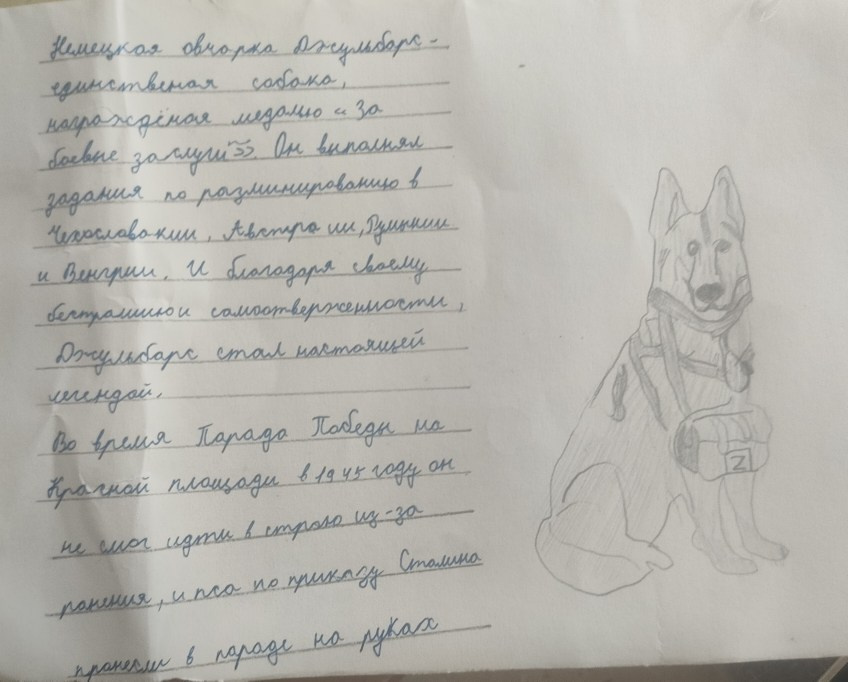 Немецкая овчарка Джульбарс -
единственая собака,
награждёная медалью « За
боевые заслуги». Он выполнял
задания по разминированию в
Чехославакии, Австра ии, Румынии
и Венгрии. И благодаря своему
бестрашию и самоотверженности,
Джульбарс стал настоящей
легендой.
Во время Парада Победы на
Красной площади в 1945 году он
не смог идти в строю из-за
ранения, и пса по приказу Сталина
пранесли в параде на руках
Z